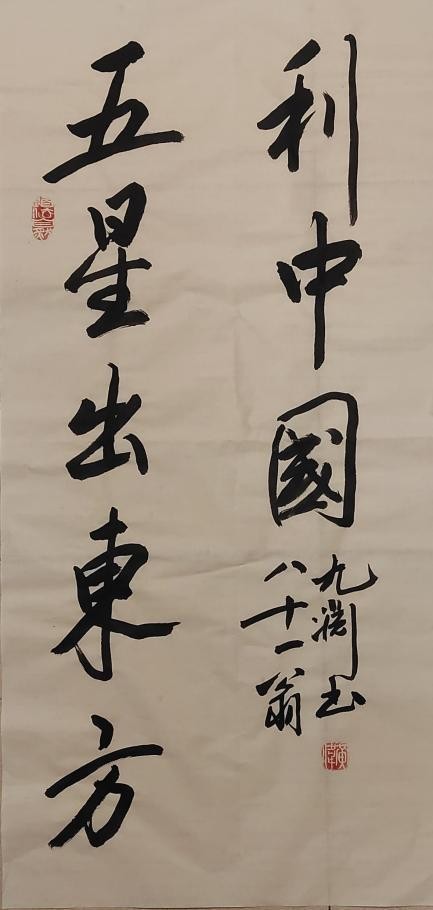 五星出東方
利中國
八十一翁
九渊书